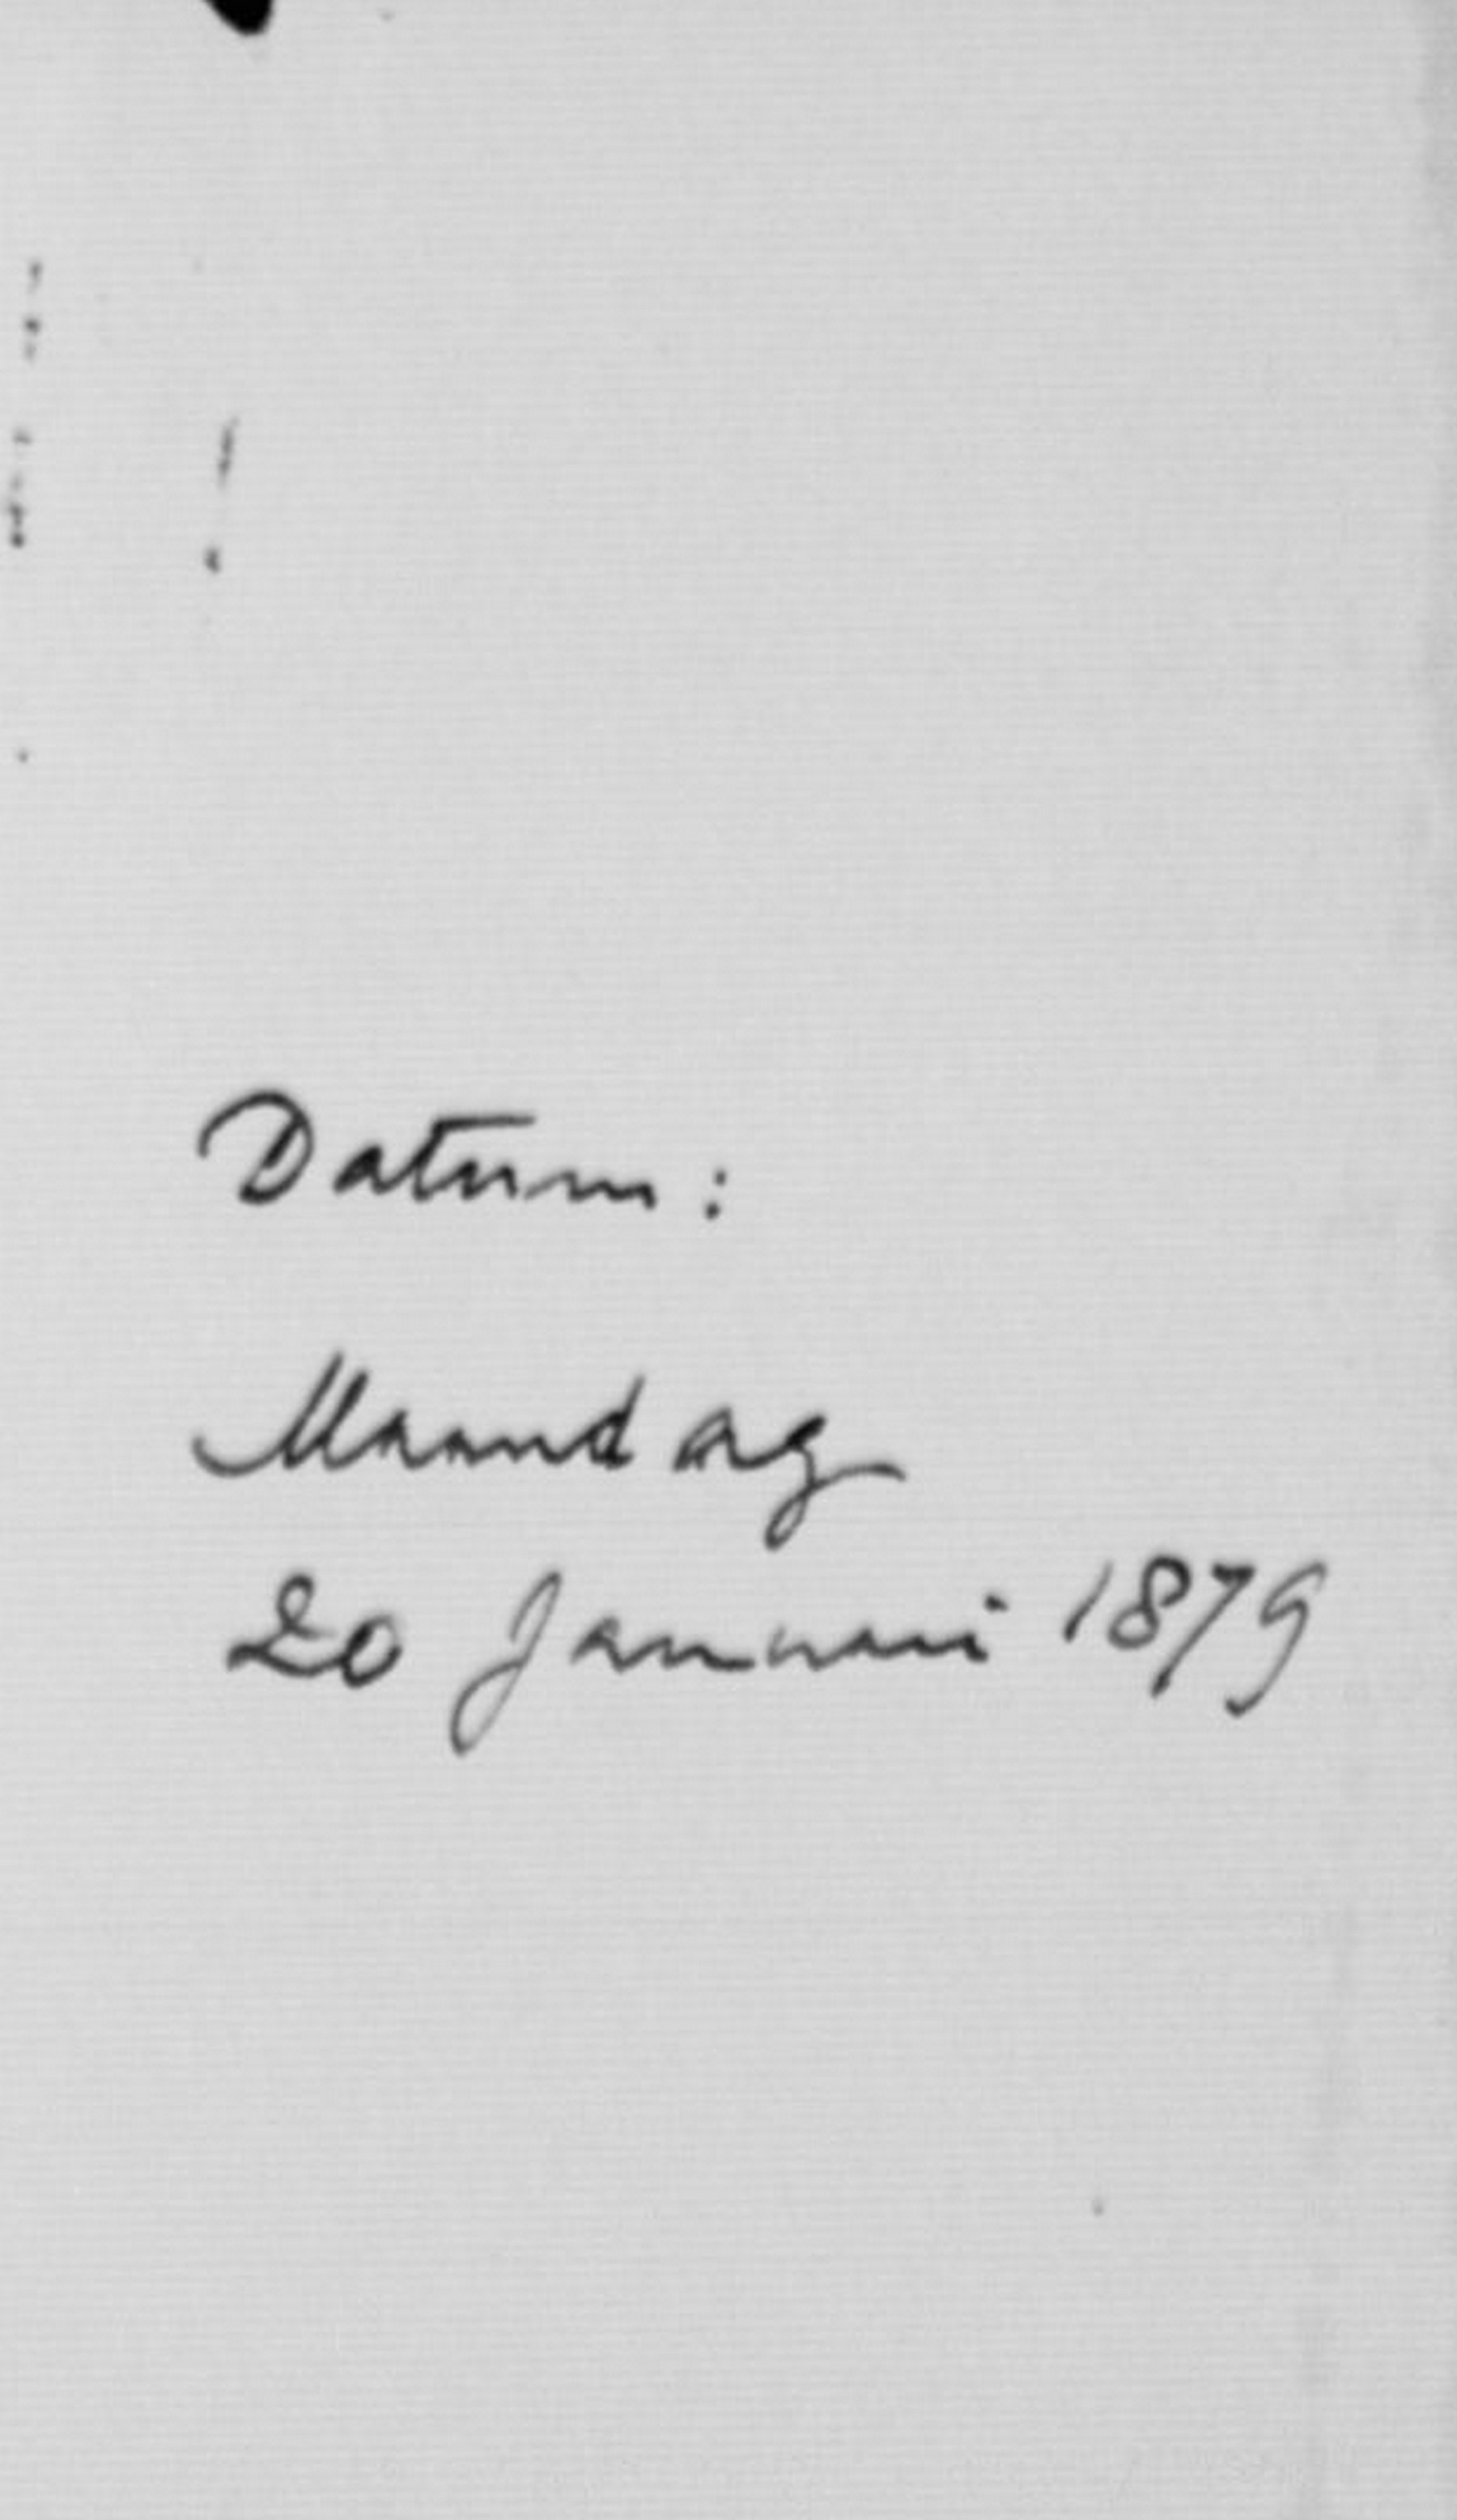 Datum:
Maandag
20 Januari 1879